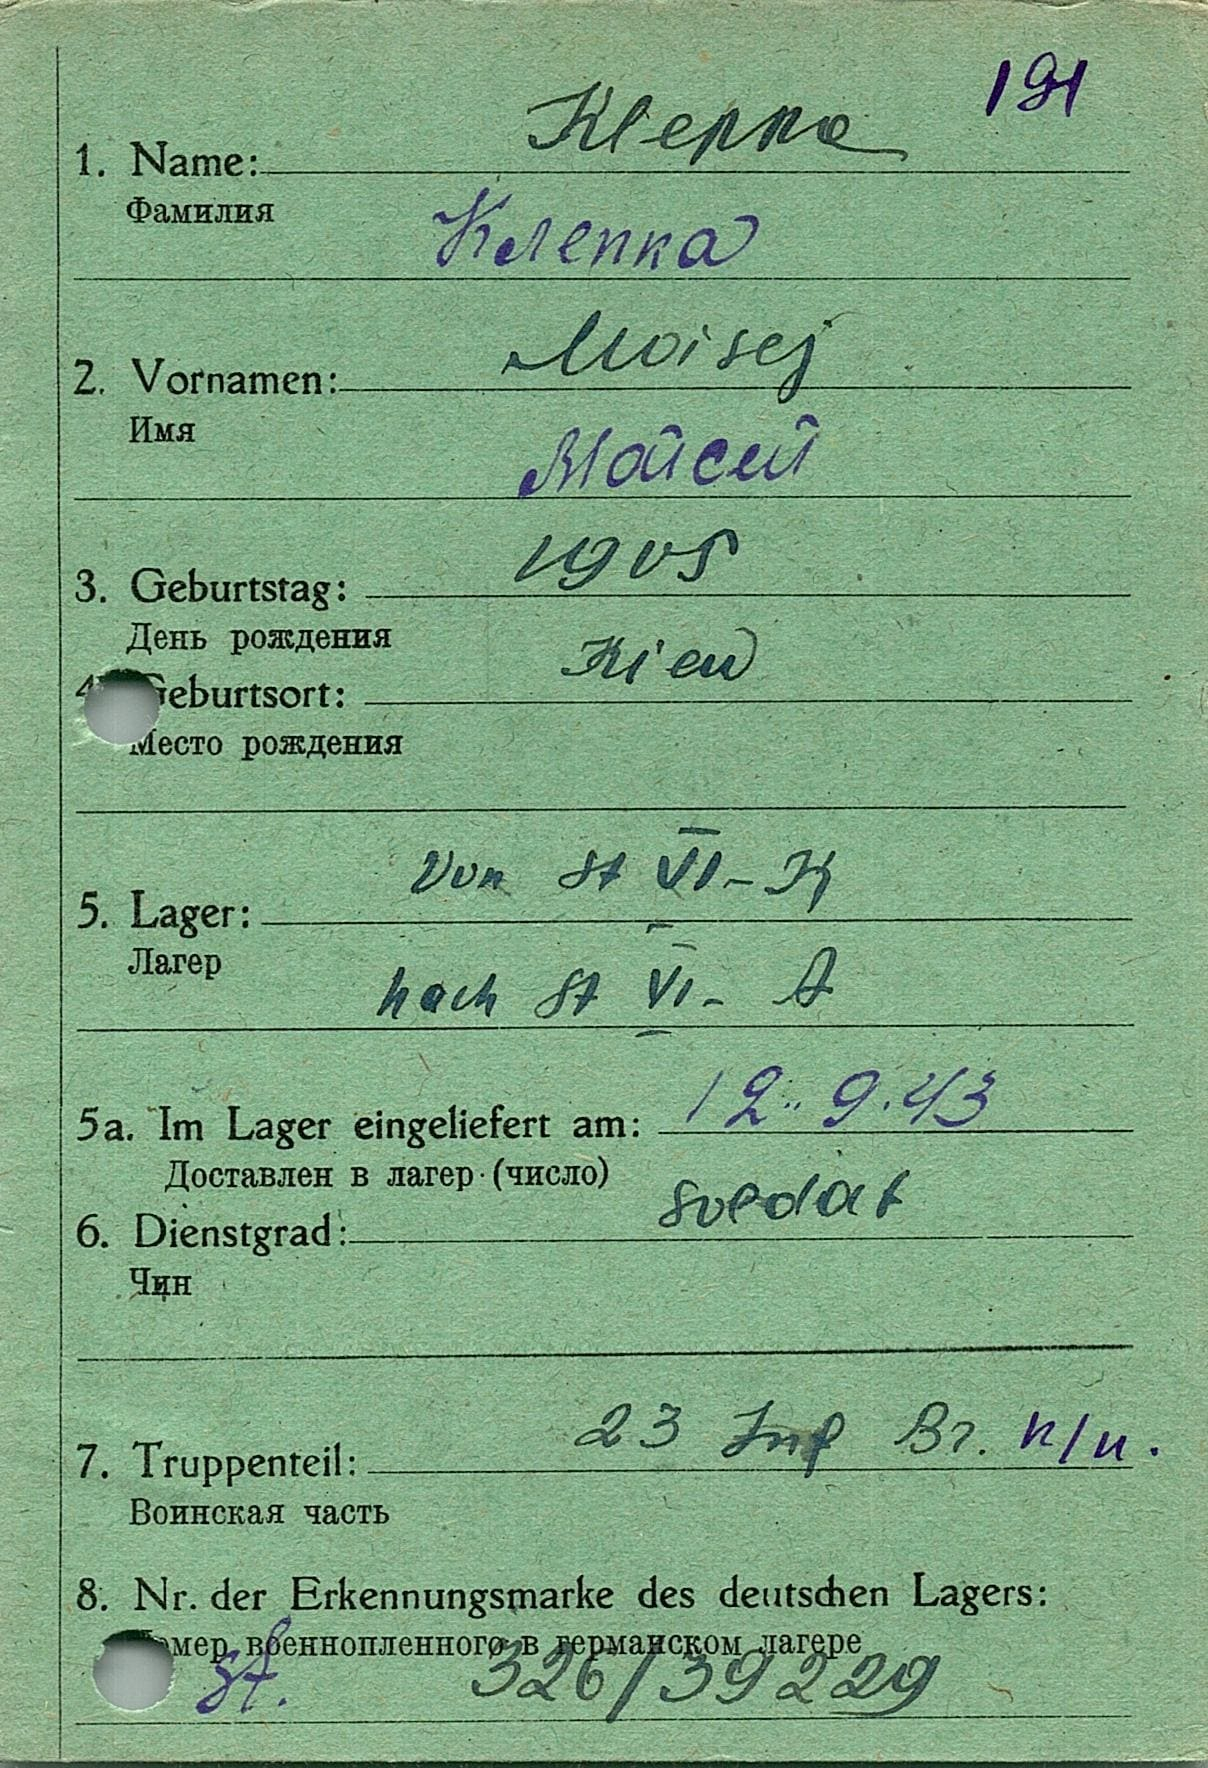 191
1. Name: Kleppa
Фамилия
Клеппа
2. Vornamen: Moisej
Имя
Мойсей
3. Geburtstag: 1905
День рождения
4. Geburtsort: Kiew
Место рождения
5. Lager: Von St VI-K
Лагер
nach St VI-A
5a. Im Lager eingeliefert am: 12.9.43
Доставлен в лагер (число)
6. Dienstgrad: Soldat
Чин
7. Truppenteil: 23 Inf Br. п/п.
Воинская часть
8. Nr. der Erkennungsmarke des deutschen Lagers:
Номер военнопленного в германском лагере
St. 326/39229